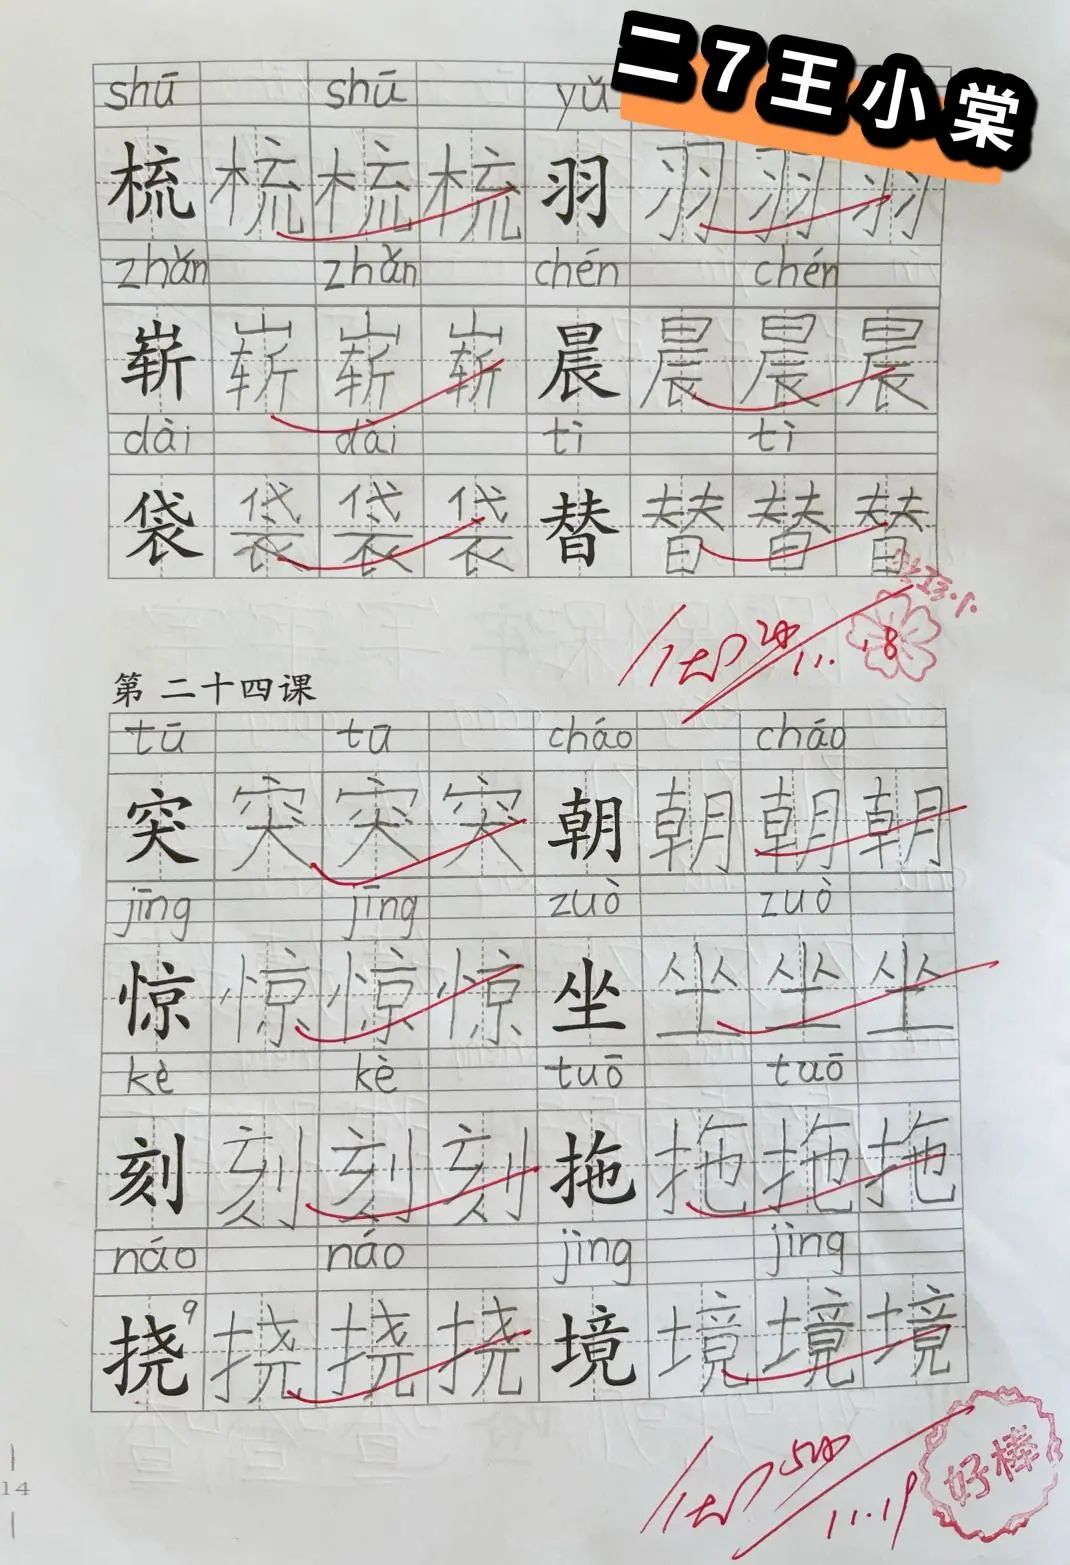 二7王小棠
shū shū yǔ
梳梳梳梳羽羽羽羽
zhǎn zhǎn chén chén
崭崭崭崭晨晨晨晨
dài dài tì tì
袋袋袋袋替替替替
11.18
第二十四课
tū tū cháo cháo
突突突突朝朝朝朝
jīng jīng zuò zuò
惊惊惊惊坐坐坐坐
kè kè tuō tuō
刻刻刻刻拖拖拖拖
náo náo jìng jìng
挠9挠挠挠境境境境
好棒
11.19
14